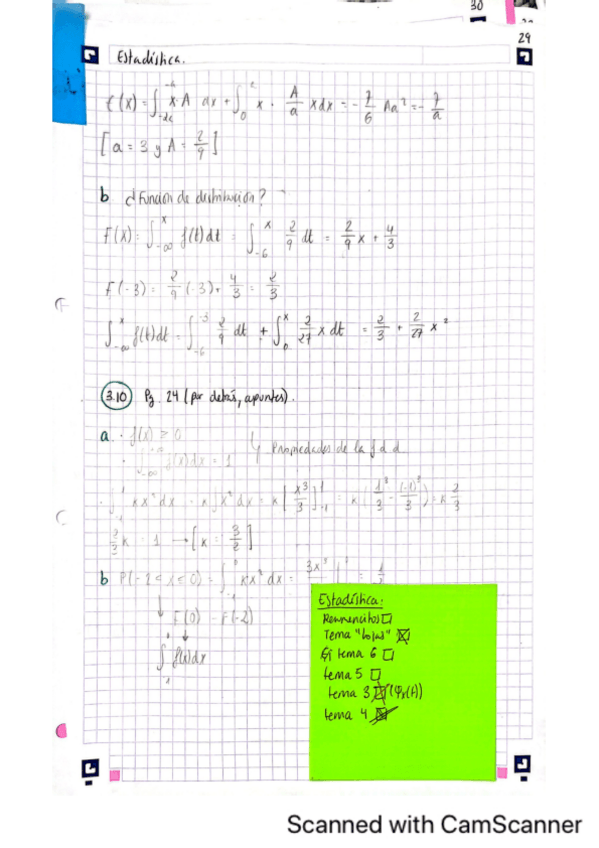 30
29
Estadística.
f(x) = ∫ x·A dx + ∫₀ x · A/a x dx = - 7/6 Aa² = - 7/a
[a = 3 y A = 2/9]
b ¿Función de distribución?
F(x) = ∫_{-∞}^{x} f(t)dt = ∫_{-6}^{x} 2/9 dt = 2/9 x + 4/3
F(-3) = 2/9 (-3) + 4/3 = 2/3
∫_{-∞}^{x} f(t)dt = ∫_{-6}^{-3} 2/9 dt + ∫_{0}^{x} 2/27 x dt = 2/3 + 2/27 x²
3.10 Pg. 24 (por detrás, apuntes).
a. · f(x) ≥ 0
· ∫ f(x)dx = 1 Propiedades de la f d d
· ∫ kx² dx = k ∫ x² dx = k [x³/3]₋₁¹ = k (1³/3 - (-1)³/3) = k 2/3
2/3 k = 1 → [k = 3/2]
b P(-2 < x ≤ 0) = ∫ kx² dx = 3x³
↓ F(0) - F(-2)
∫ f(x)dx
Estadística:
Tema "hojas" ☒
Ej tema 6 ☐
tema 5 ☐
tema 3 ☒ (φx(t))
tema 4 ☒
Scanned with CamScanner